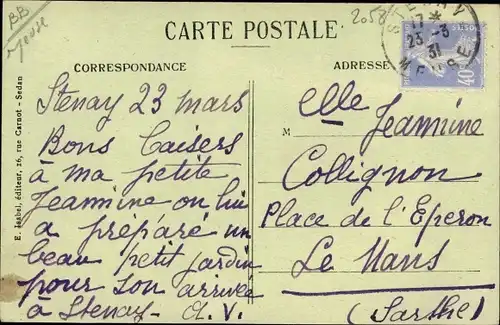 BB
Meuse
2058
CARTE POSTALE
CORRESPONDANCE
ADRESSE
17
23 - 3
31
40
E. Isabel, éditeur, 16, rue Carnot - Sedan
Stenay 23 mars
Bons baisers
à ma petite
Jeannine on lui
a préparé un
beau petit jardin
pour son arrivée
à Stenay - A.V.
M elle Jeannine
Collignon
Place de l'Eperon
Le Mans
(Sarthe)